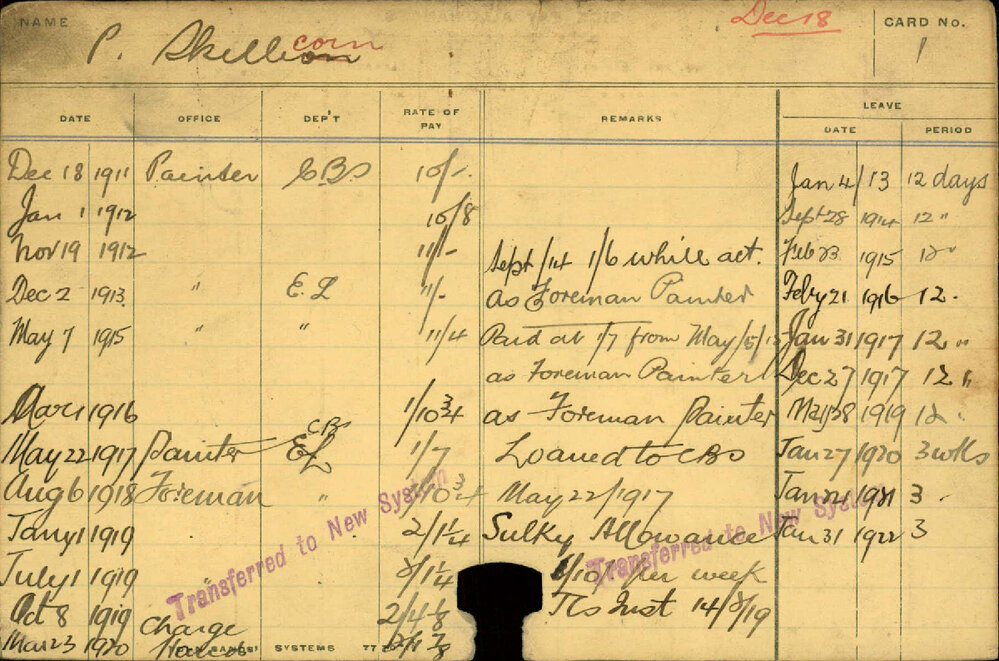 NAME P. Skellicorn Dec 18 CARD No. 1
DATE OFFICE DEP'T RATE OF PAY REMARKS LEAVE DATE PERIOD
Dec 18 1911 Painter C.B.S 10/-. Jan 4/13 12 days
Jan 1 1912 10/8 Sept 28 1914 12 "
Nov 19 1912 11/- Sept/14 1/6 while act. Feb 23 1915 12 "
Dec 2 1913. " E.L 11/- as Foreman Painter Feby 21 1916 12.
May 7 1915 " " 11/4 Paid at 1/7 from May/15/ Jan 31 1917 12 "
as Foreman Painter Dec 27 1917 12 "
Mar 1 1916 1/10 3/4 as Foreman Painter 1919 12 .
May 22 1917 Painter CBS EL 1/7 Loaned to CBS Jan 27 1920 3 wks
Aug 6 1918 Foreman " /10 3/4 May 22/1917 Jan 24 1921 3 .
Jany 1 1919 2/1 1/4 Sulky Allowance Jan 31 1922 3
July 1 1919 2/1 1/4 1/10/ per week
Oct 8 1919 2/4-8 Tls Inst 14/8/19
Mar 23 1920 Charge Hand
SYSTEMS 77
Transferred to New System
Transferred to New System